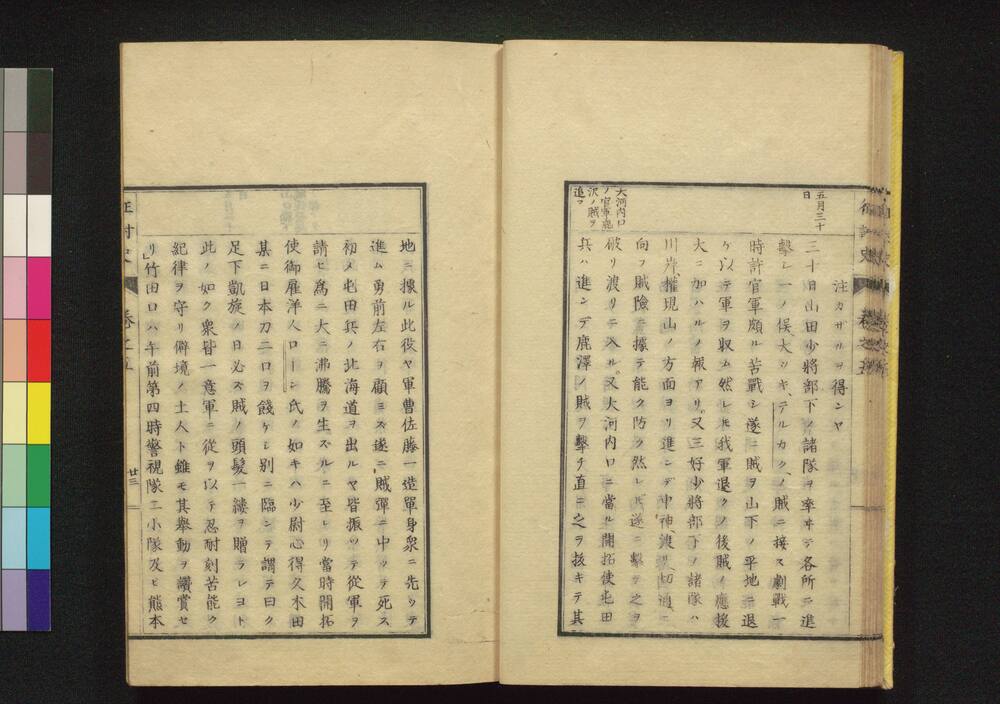 注カザルヲ得ンヤ
五月三十
日
三十日山田少將部下ノ諸隊ヲ率ヰテ各所ニ進
擊シ一ノ俣、大ツキ、テルカクノ賊ニ接ス劇戰一
時許官軍頗ル苦戰シ遂ニ賊ヲ山下ノ平地ニ退
ケ以テ軍ヲ収ム然レ𪜈我軍退クノ後賊ノ應援
大ニ加ハルノ報アリ。又三好少將部下ノ諸隊ハ
川岸、權現山ノ方面ヨリ進ンデ中神、渡リ、切通ニ
大河内口
ノ官軍鹿
沢ノ賊ヲ
追フ
向フ賊險ニ據テ能ク防ク然レ𪜈遂ニ擊テ之ヲ
破リ渡リニ入ル。又大河内口ニ當ル開拓使屯田
兵ハ進ンデ鹿澤ノ賊ヲ擊チ直ニ之ヲ抜キテ其
地ニ據ル此役ヤ軍曹佐藤一造單身衆ニ先ツテ
進ム勇前左右ヲ顧ミス遂ニ賊彈ニ中ツテ死ス
初メ屯田兵ノ北海道ヲ出ルヤ皆振ツテ從軍ヲ
請ヒ爲ニ大ニ沸騰ヲ生スルニ至レリ當時開拓
使御雇洋人ローシ氏ノ如キハ少尉心得久木田
某ニ日本刀二口ヲ餞ケシ別ニ臨ンテ謂テ曰ク
足下凱旋ノ日必ス賊ノ頭髮一縷ヲ贈ラレヨト
此ノ如ク衆皆一意軍ニ從ヲ以テ忍耐刻苦能ク
紀律ヲ守リ僻境ノ土人ト雖モ其舉動ヲ讚賞セ
リ」竹田口ハ午前第四時警視隊二小隊及ヒ熊本
廿三
征討史
卷之五